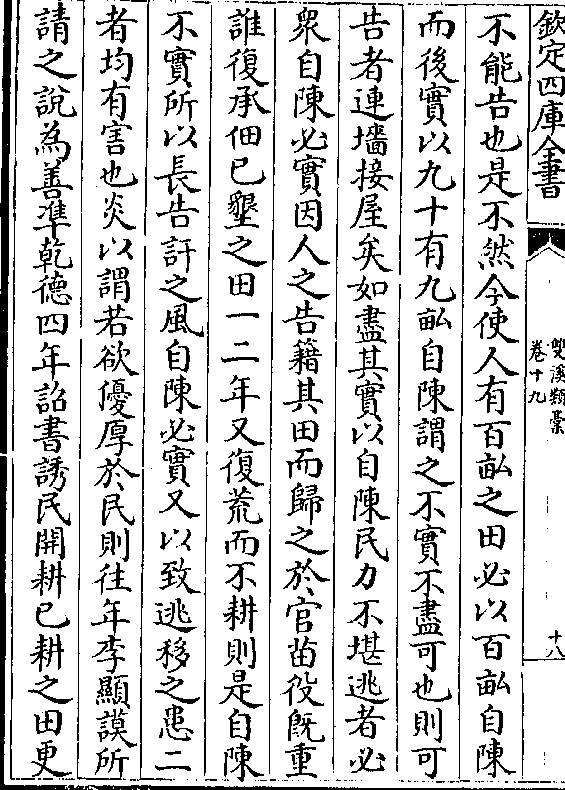 欽定四庫全書
雙溪類稾
卷十九
十八
不能告也是不然今使人有百畝之田必以百畝自陳
而後實以九十有九畝自陳謂之不實不盡可也則可
告者連墻接屋矣如盡其實以自陳民力不堪逃者必
衆自陳必實因人之告籍其田而歸之於官苗役既重
誰復承佃已墾之田一二年又復荒而不耕則是自陳
不實所以長告訐之風自陳必實又以致逃移之患二
者均有害也炎以謂若欲優厚於民則往年李顯謨所
請之說為善準乾德四年詔書誘民開耕已耕之田更